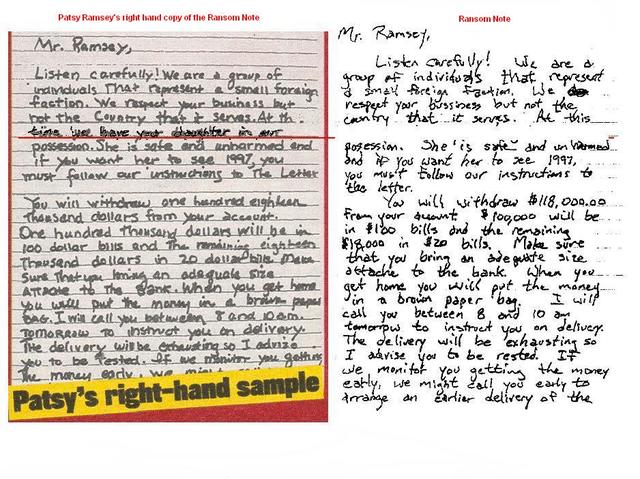 Patsy Ramsey's right hand copy of the Ransom Note
Mr. Ramsey,
Listen carefully! We are a group of
individuals That represent a small foreign
faction. We respect your business but
not the Country that it serves. At th
time we have your daughter in our
possession. She is safe and unharmed and
if you want her to see 1997, you
must follow our instructions to The Letter
You will withdraw one hundred eighteen
Thousand dollars from your account.
One hundred Thousand dollars will be in
100 dollar bills and The remaining eighteen
Thousand dollars in 20 dollar bills. Make
Sure That you bring an adequate size
ATTACHE to The BANK. When you get home
you will put the money in a brown paper
BAG. I will call you between 8 and 10am.
Tomorrow to instruct you on delivery.
The delivery will be exhausting so I advize
you to be rested. If we monitor you getting
The money early, we
Patsy's right-hand sample
Ransom Note
Mr. Ramsey,
Listen carefully! We are a
group of individuals that represent
a small foreign faction. We do
respect your bussiness but not the
country that it serves. At this
posession. She is safe and unharmed
and if you want her to see 1997,
you must follow our instructions to
the letter.
You will withdraw $118,000.00
from your account. $100,000 will be
in $100 bills and the remaining
$18,000 in $20 bills. Make sure
that you bring an adequate size
attache to the bank. When you
get home you will put the money
in a brown paper bag. I will
call you between 8 and 10 am
tomorrow to instruct you on delivery.
The delivery will be exhausting so
I advise you to be rested. If
we monitor you getting the money
early, we might call you early to
arrange an earlier delivery of the